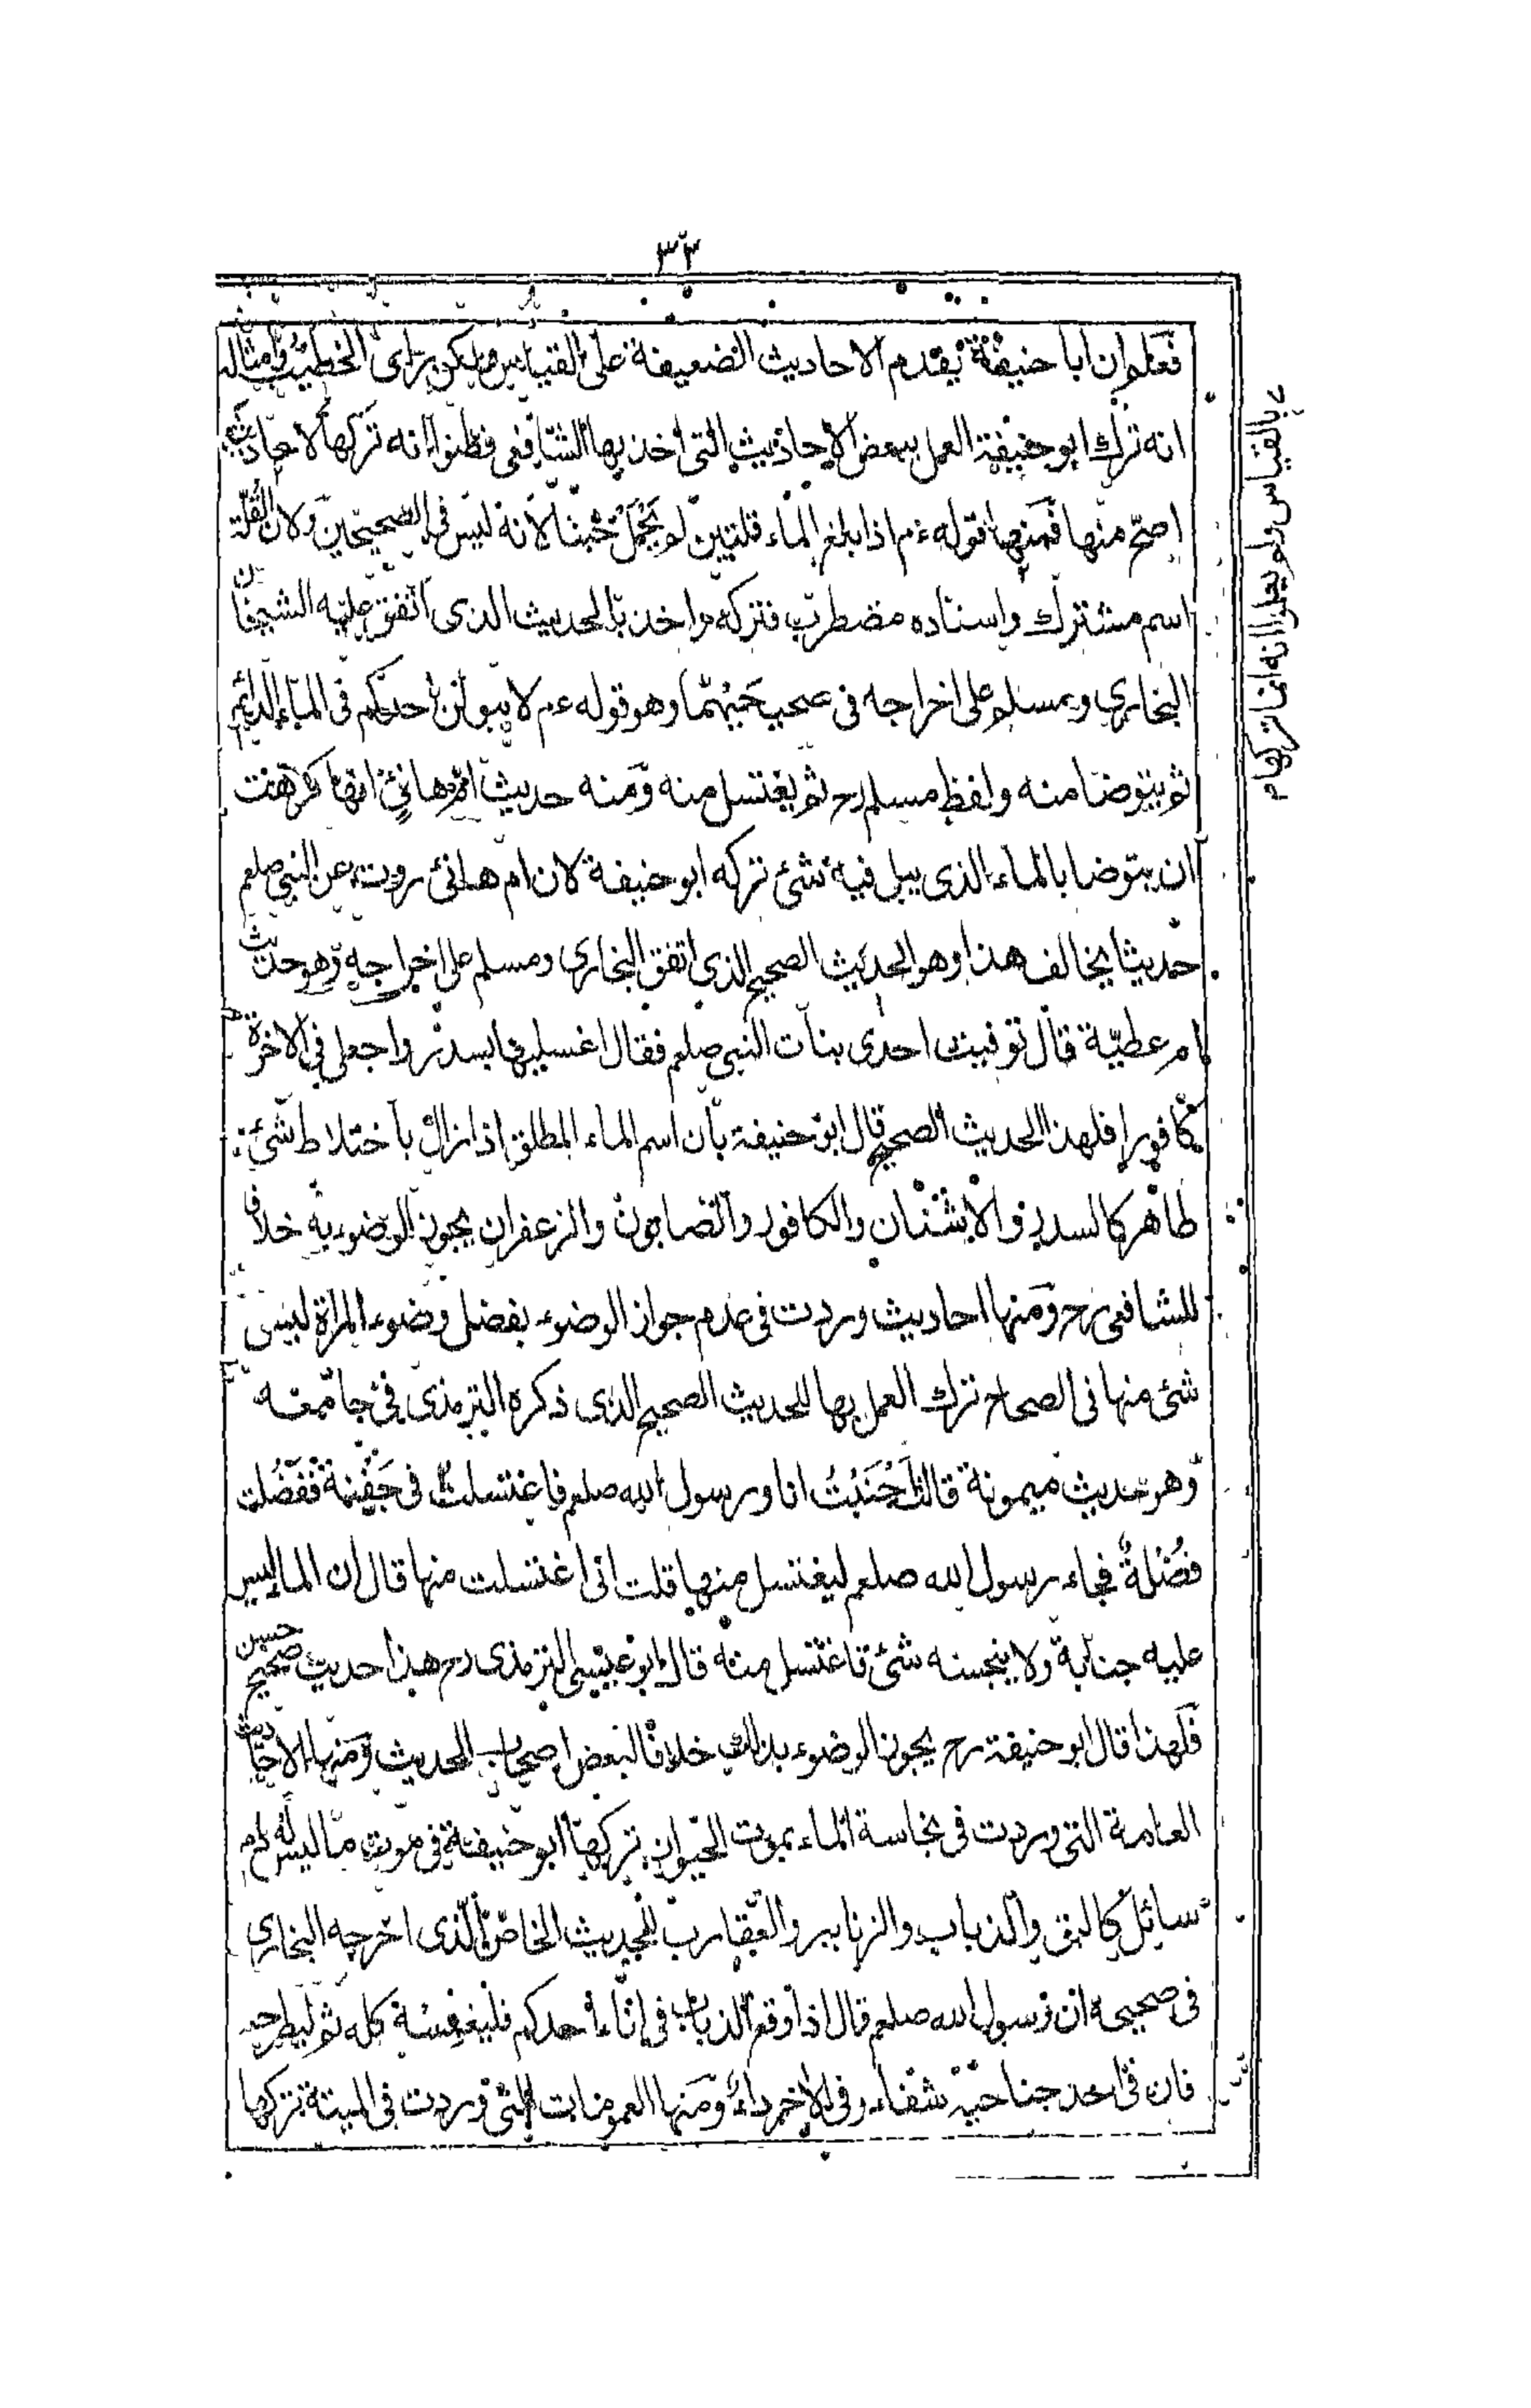 ٣٣
فعلم ان ابا حنيفة يقدم الاحاديث الضعيفة على القياس ولكن راى الخطيب وامثاله
انه ترك ابو حنيفة العمل ببعض الاحاديث التى اخذ بها الشافعى فظنوا انه تركها لاحاديث
اصح منها فمنها قوله ءم اذا بلغ الماء قلتين لم يحمل خبثا لانه ليس فى الصحيحين ولان القلة
اسم مشترك واسناده مضطرب فتركه واخذ بالحديث الذى اتفق عليه الشيخان
البخارى ومسلم على اخراجه فى صحيحيهما وهو قوله ءم لا يبولن احدكم فى الماء الدائم
ثم يتوضا منه ولفظ مسلم رح ثم يغتسل منه ومنه حديث ام هانئ انها كرهت
ان يتوضا بالماء الذى يبل فيه شئ تركه ابو حنيفة لان ام هانئ روت عن النبى صلعم
حديثا يخالف هذا وهو الحديث الصحيح الذى اتفق البخارى ومسلم على اخراجه وهو حديث
ام عطية قال توفيت احدى بنات النبى صلعم فقال اغسليها بسدر واجعلى فى الاخرة
كافورا فلهذا الحديث الصحيح قال ابو حنيفة بان اسم الماء المطلق اذا زال باختلاط شئ
طاهر كالسدر والاشنان والكافور والصابون والزعفران يجوز الوضوء به خلافا
للشافعى رح ومنها احاديث وردت فى عدم جواز الوضوء بفضل وضوء المراة ليس
شئ منها فى الصحاح ترك العمل بها للحديث الصحيح الذى ذكره الترمذى فى جامعه
وهو حديث ميمونة قالت جُنَبْتُ انا ورسول الله صلعم فاغتسلت فى جَفْنة ففَضُلت
فُضْلةٌ فجاء رسول الله صلعم ليغتسل منها قلت انى اغتسلت منها قال ان الماء ليس
عليه جنابة ولا ينجسه شئ فاغتسل منه قال ابو عيسى الترمذى رح هذا حديث حسن صحيح
فلهذا قال ابو حنيفة رح يجوز الوضوء بذلك خلافا لبعض اصحاب الحديث ومنها الاحاديث
العامة التى وردت فى نجاسة الماء بموت الحيوان تركها ابو حنيفة فى موت ما ليس له دم
سائل كالبق والذباب والزنابير والعقارب للحديث الخاص الذى اخرجه البخارى
فى صحيحه ان رسول الله صلعم قال اذا وقع الذباب فى اناء احدكم فليغمسه كله ثم ليطرحه
فان فى احد جناحيه شفاء وفى الاخر داء ومنها العمومات التى وردت فى الميتة تركها
بالقياس ولم يعلموا انه انما تركها